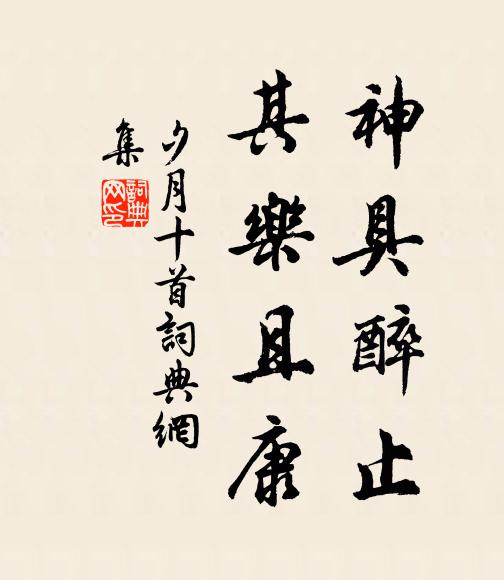 神具醉止
其樂且康
夕月十首詞典網
集
詞典
网印